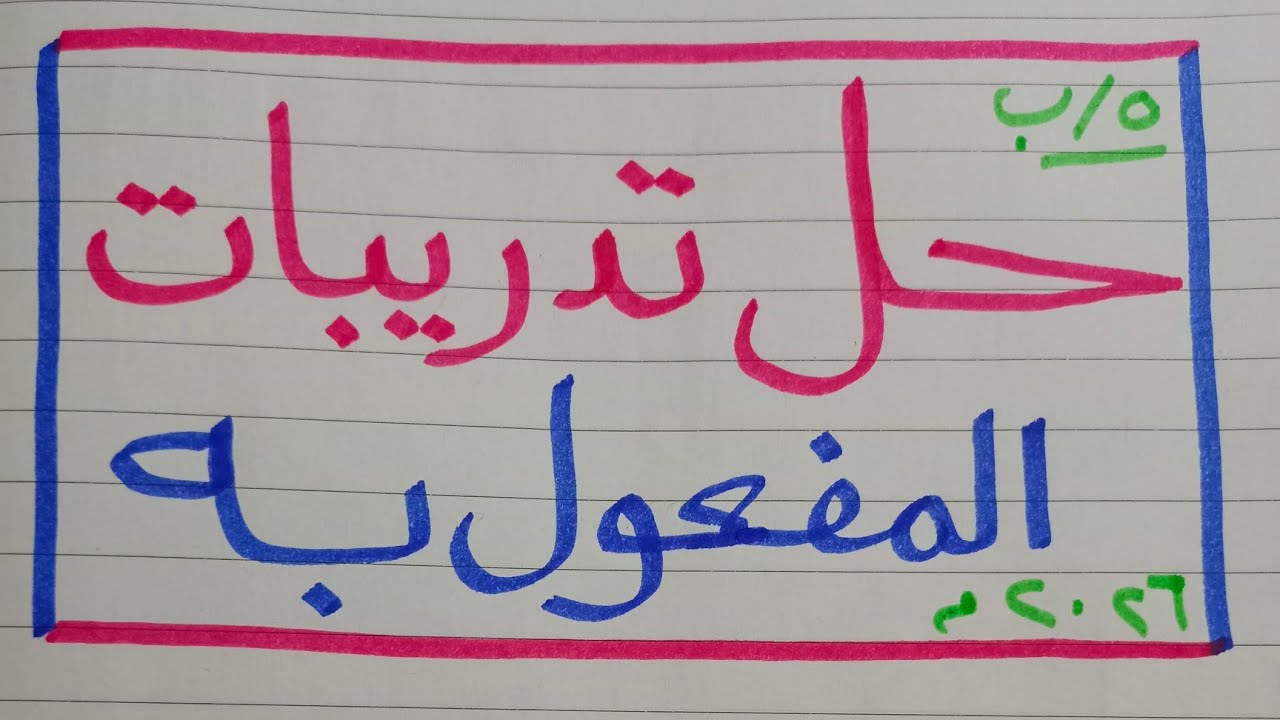 ٥/ب
حل تدريبات
المفعول به
٢٠٢٦م